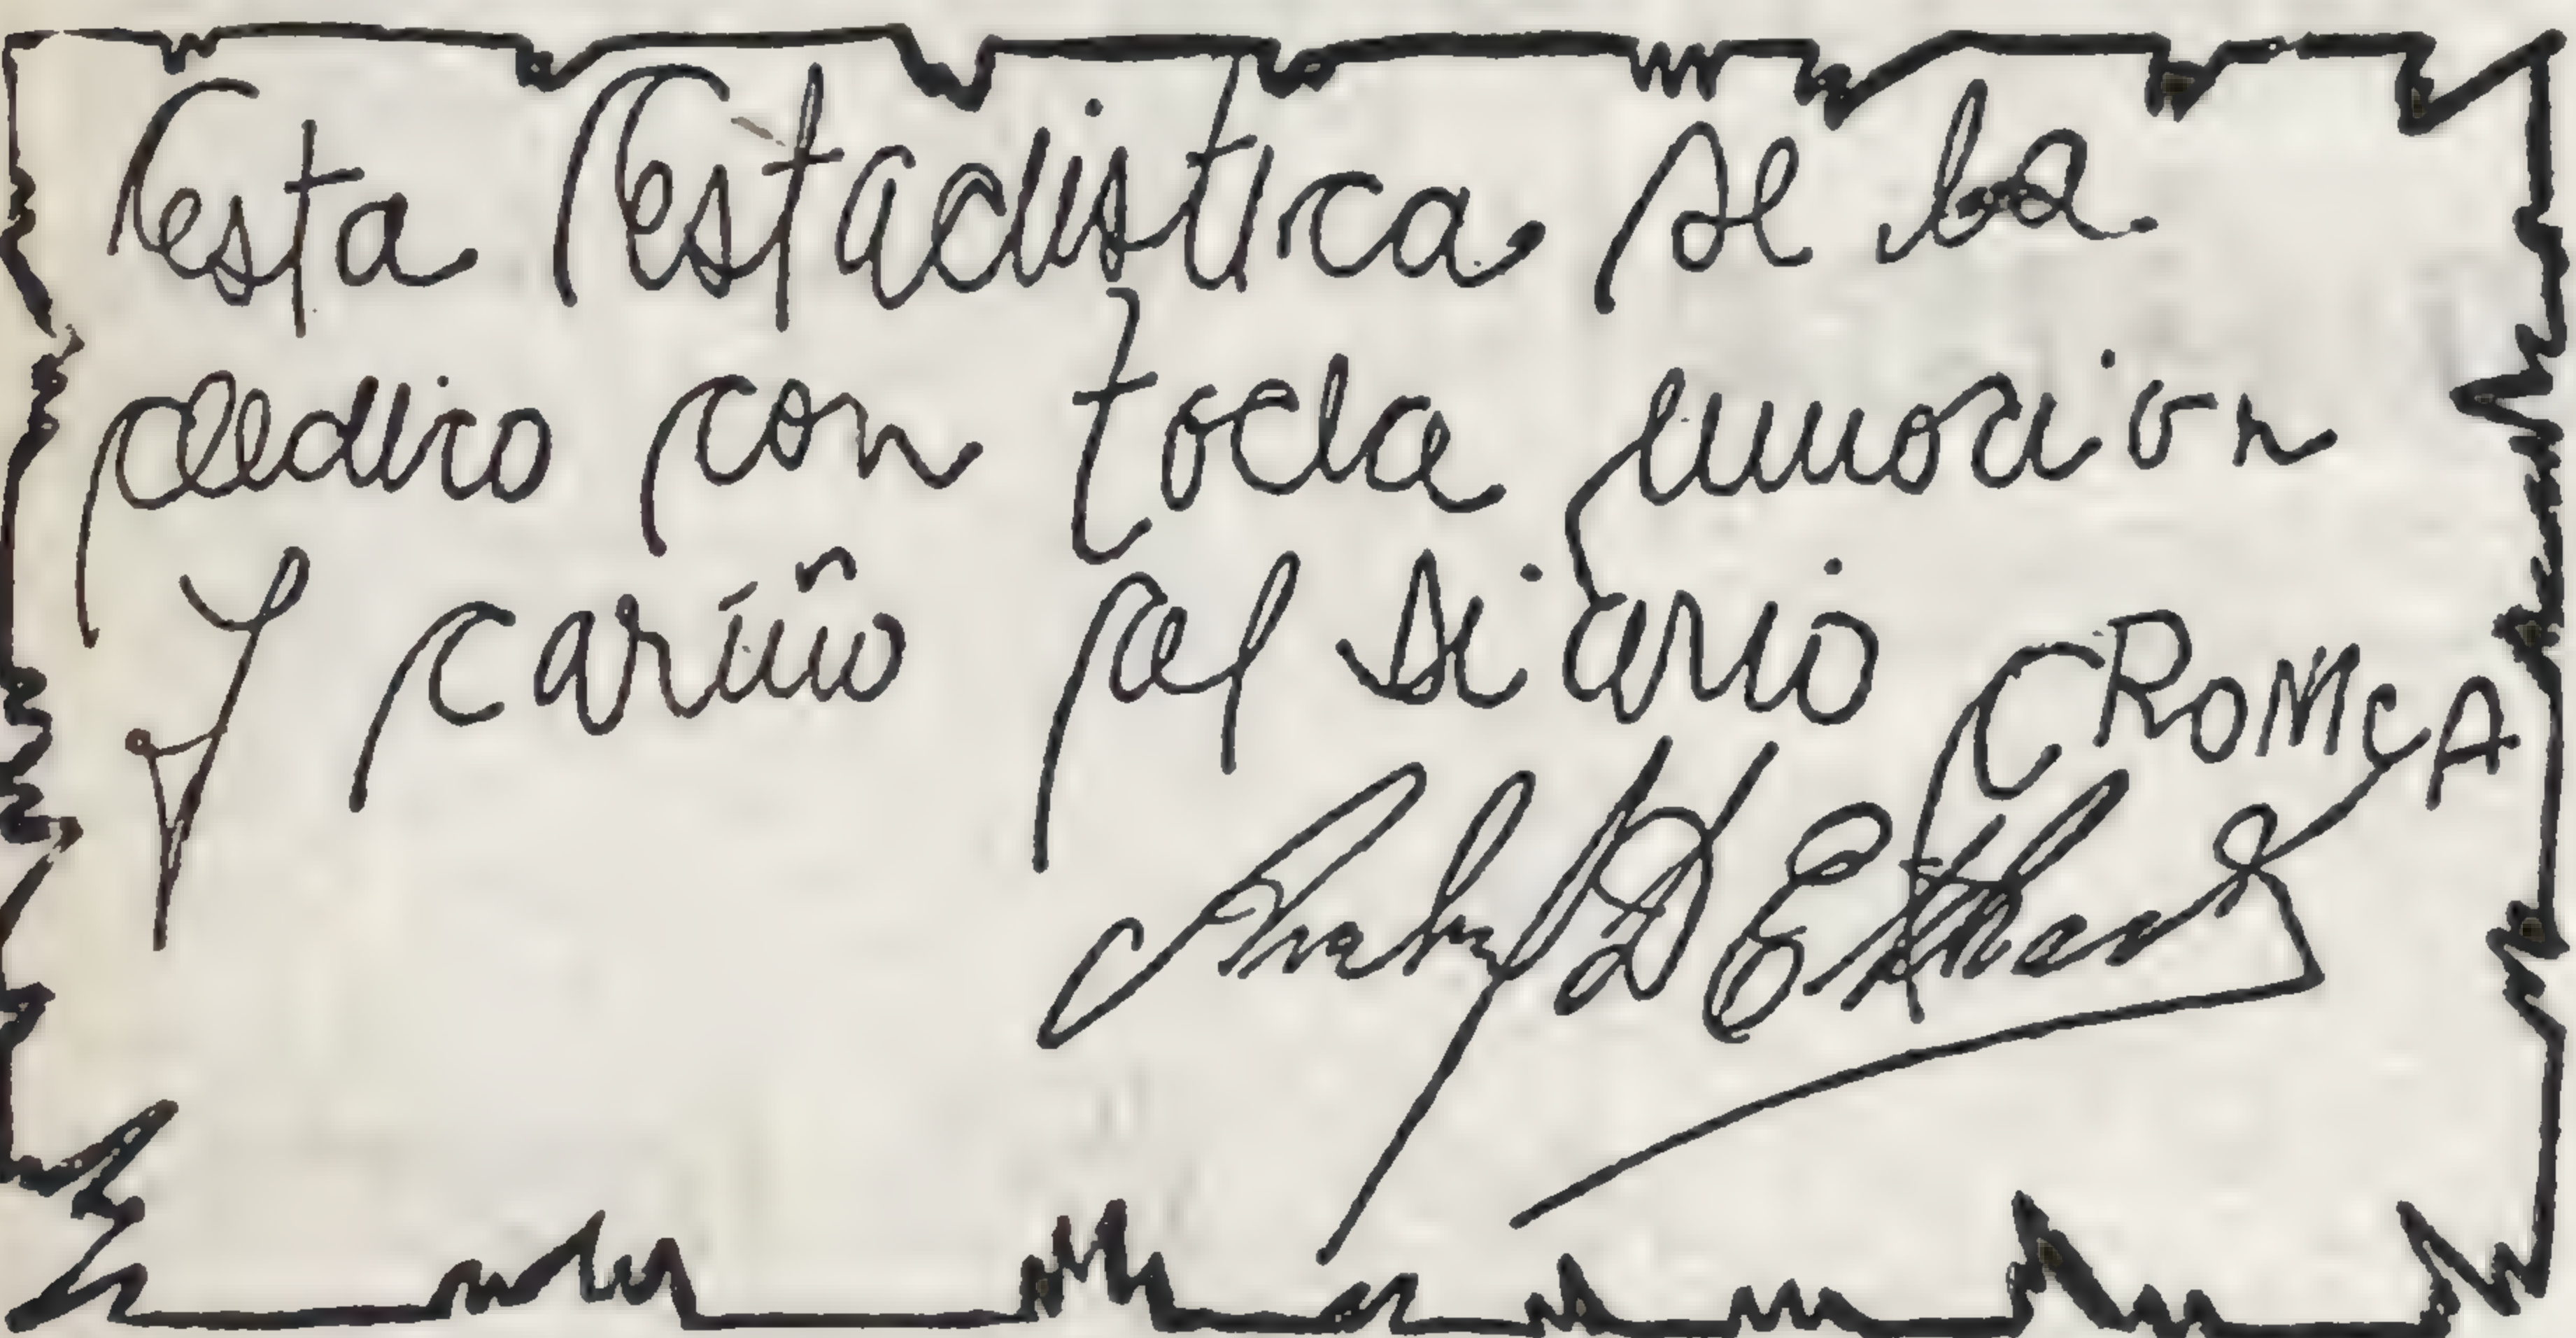 esta estadistica se la
dedico con toda emocion
y cariño al diario
CRONICA